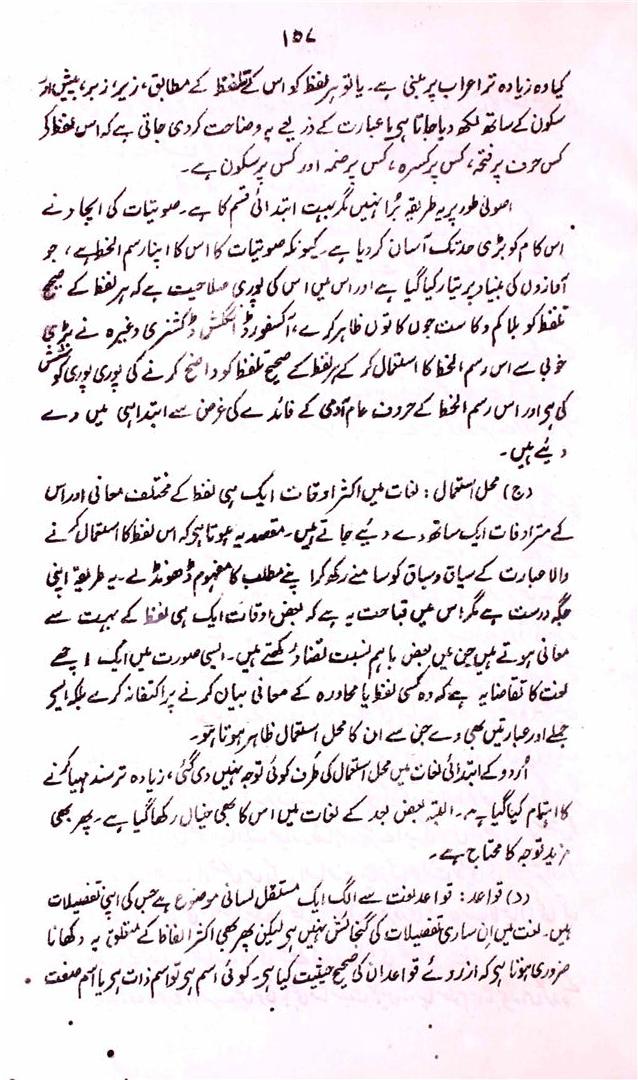 ۱۵۷
کیا وہ زیادہ تر اعراب پر مبنی ہے۔ یا تو ہر لفظ کو اس کے تلفظ کے مطابق، زیر، زبر، پیش اور
سکون کے ساتھ لکھ دیا جاتا ہی یا عبارت کے ذریعے یہ وضاحت کردی جاتی ہے کہ اس لفظ کے
کس حرف پر فتحہ، کس پر کسرہ، کس پر ضمہ اور کس پر سکون ہے۔
اصولی طور پر یہ طریقہ بُرا نہیں مگر بہت ابتدائی قسم کا ہے۔ صوتیات کی ایجاد نے
اس کام کو بڑی حد تک آسان کردیا ہے۔ کیونکہ صوتیات کا اس کا اپنا رسم الخط ہے، جو
آوازوں کی بنیاد پر تیار کیا گیا ہے اور اس میں اس کی پوری صلاحیت ہے کہ ہر لفظ کے صحیح
تلفظ کو بلا کم و کاست جوں کا توں ظاہر کرے، آکسفورڈ انگلش ڈکشنری وغیرہ نے بڑی
خوبی سے اس رسم الخط کا استعمال کر کے ہر لفظ کے صحیح تلفظ کو واضح کرنے کی پوری پوری کوشش
کی ہی اور اس رسم الخط کے حروف عام آدمی کے فائدے کی غرض سے ابتدا ہی میں دے
دیئے ہیں۔
(ج) محل استعمال: لغات میں اکثر اوقات ایک ہی لفظ کے مختلف معانی اور اس
کے مترادفات ایک ساتھ دے دیئے جاتے ہیں۔ مقصد یہ ہوتا ہی کہ اس لفظ کا استعمال کرنے
والا عبارت کے سیاق و سباق کو سامنے رکھ کر اپنے مطلب کا مفہوم ڈھونڈ لے۔ یہ طریقہ اپنی
جگہ درست ہے مگر اس میں قباحت یہ ہے کہ بعض اوقات ایک ہی لفظ کے بہت سے
معانی ہوتے ہیں جن میں بعض باہم نسبت تضاد رکھتے ہیں۔ ایسی صورت میں ایک اچھے
لغت کا تقاضا یہ ہے کہ وہ کسی لفظ یا محاورہ کے معانی بیان کرنے پر اکتفا نہ کرے بلکہ ایسے
جملے اور عبارتیں بھی دے جن سے ان کا محل استعمال ظاہر ہوتا ہو۔
اُردو کے ابتدائی لغات میں محل استعمال کی طرف کوئی توجہ نہیں دی گئی، زیادہ تر سند مہیا کرنے
کا اہتمام کیا گیا ہے۔ البتہ بعض بعد کے لغات میں اس کا بھی خیال رکھا گیا ہے۔ پھر بھی
مزید توجہ کا محتاج ہے۔
(د) قواعد: قواعد لغت سے الگ ایک مستقل لسانی موضوع ہے جس کی اپنی تفصیلات
ہیں۔ لغت میں ان ساری تفصیلات کی گنجائش نہیں ہی لیکن پھر بھی اکثر الفاظ کے متعلق یہ دکھانا
ضروری ہوتا ہی کہ ازروئے قواعد ان کی صحیح حیثیت کیا ہی۔ کوئی اسم ہی تو اسم ذات ہی یا اسم صفت